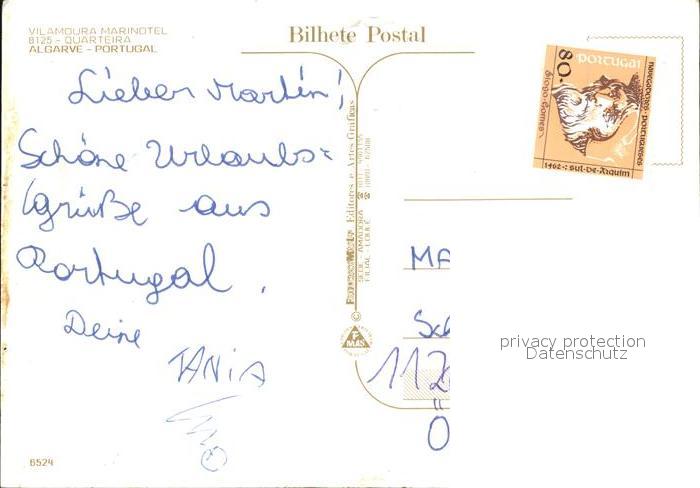 VILAMOURA MARINOTEL
8125 - QUARTEIRA
ALGARVE - PORTUGAL
Bilhete Postal
80.
PORTUGAL
NAVEGADORES PORTUGUESES
Diogo Gomes
1462-: sul-De-Arguim
Lieber Martin!
Schöne Urlaubs=
grüße aus
Portugal.
Deine
TANIA
Editores e Artes Gráficas
SEDE - AMADORA
FILIAL - LOULÉ
©
MA
Sc
112
Ö
privacy protection
Datenschutz
6524